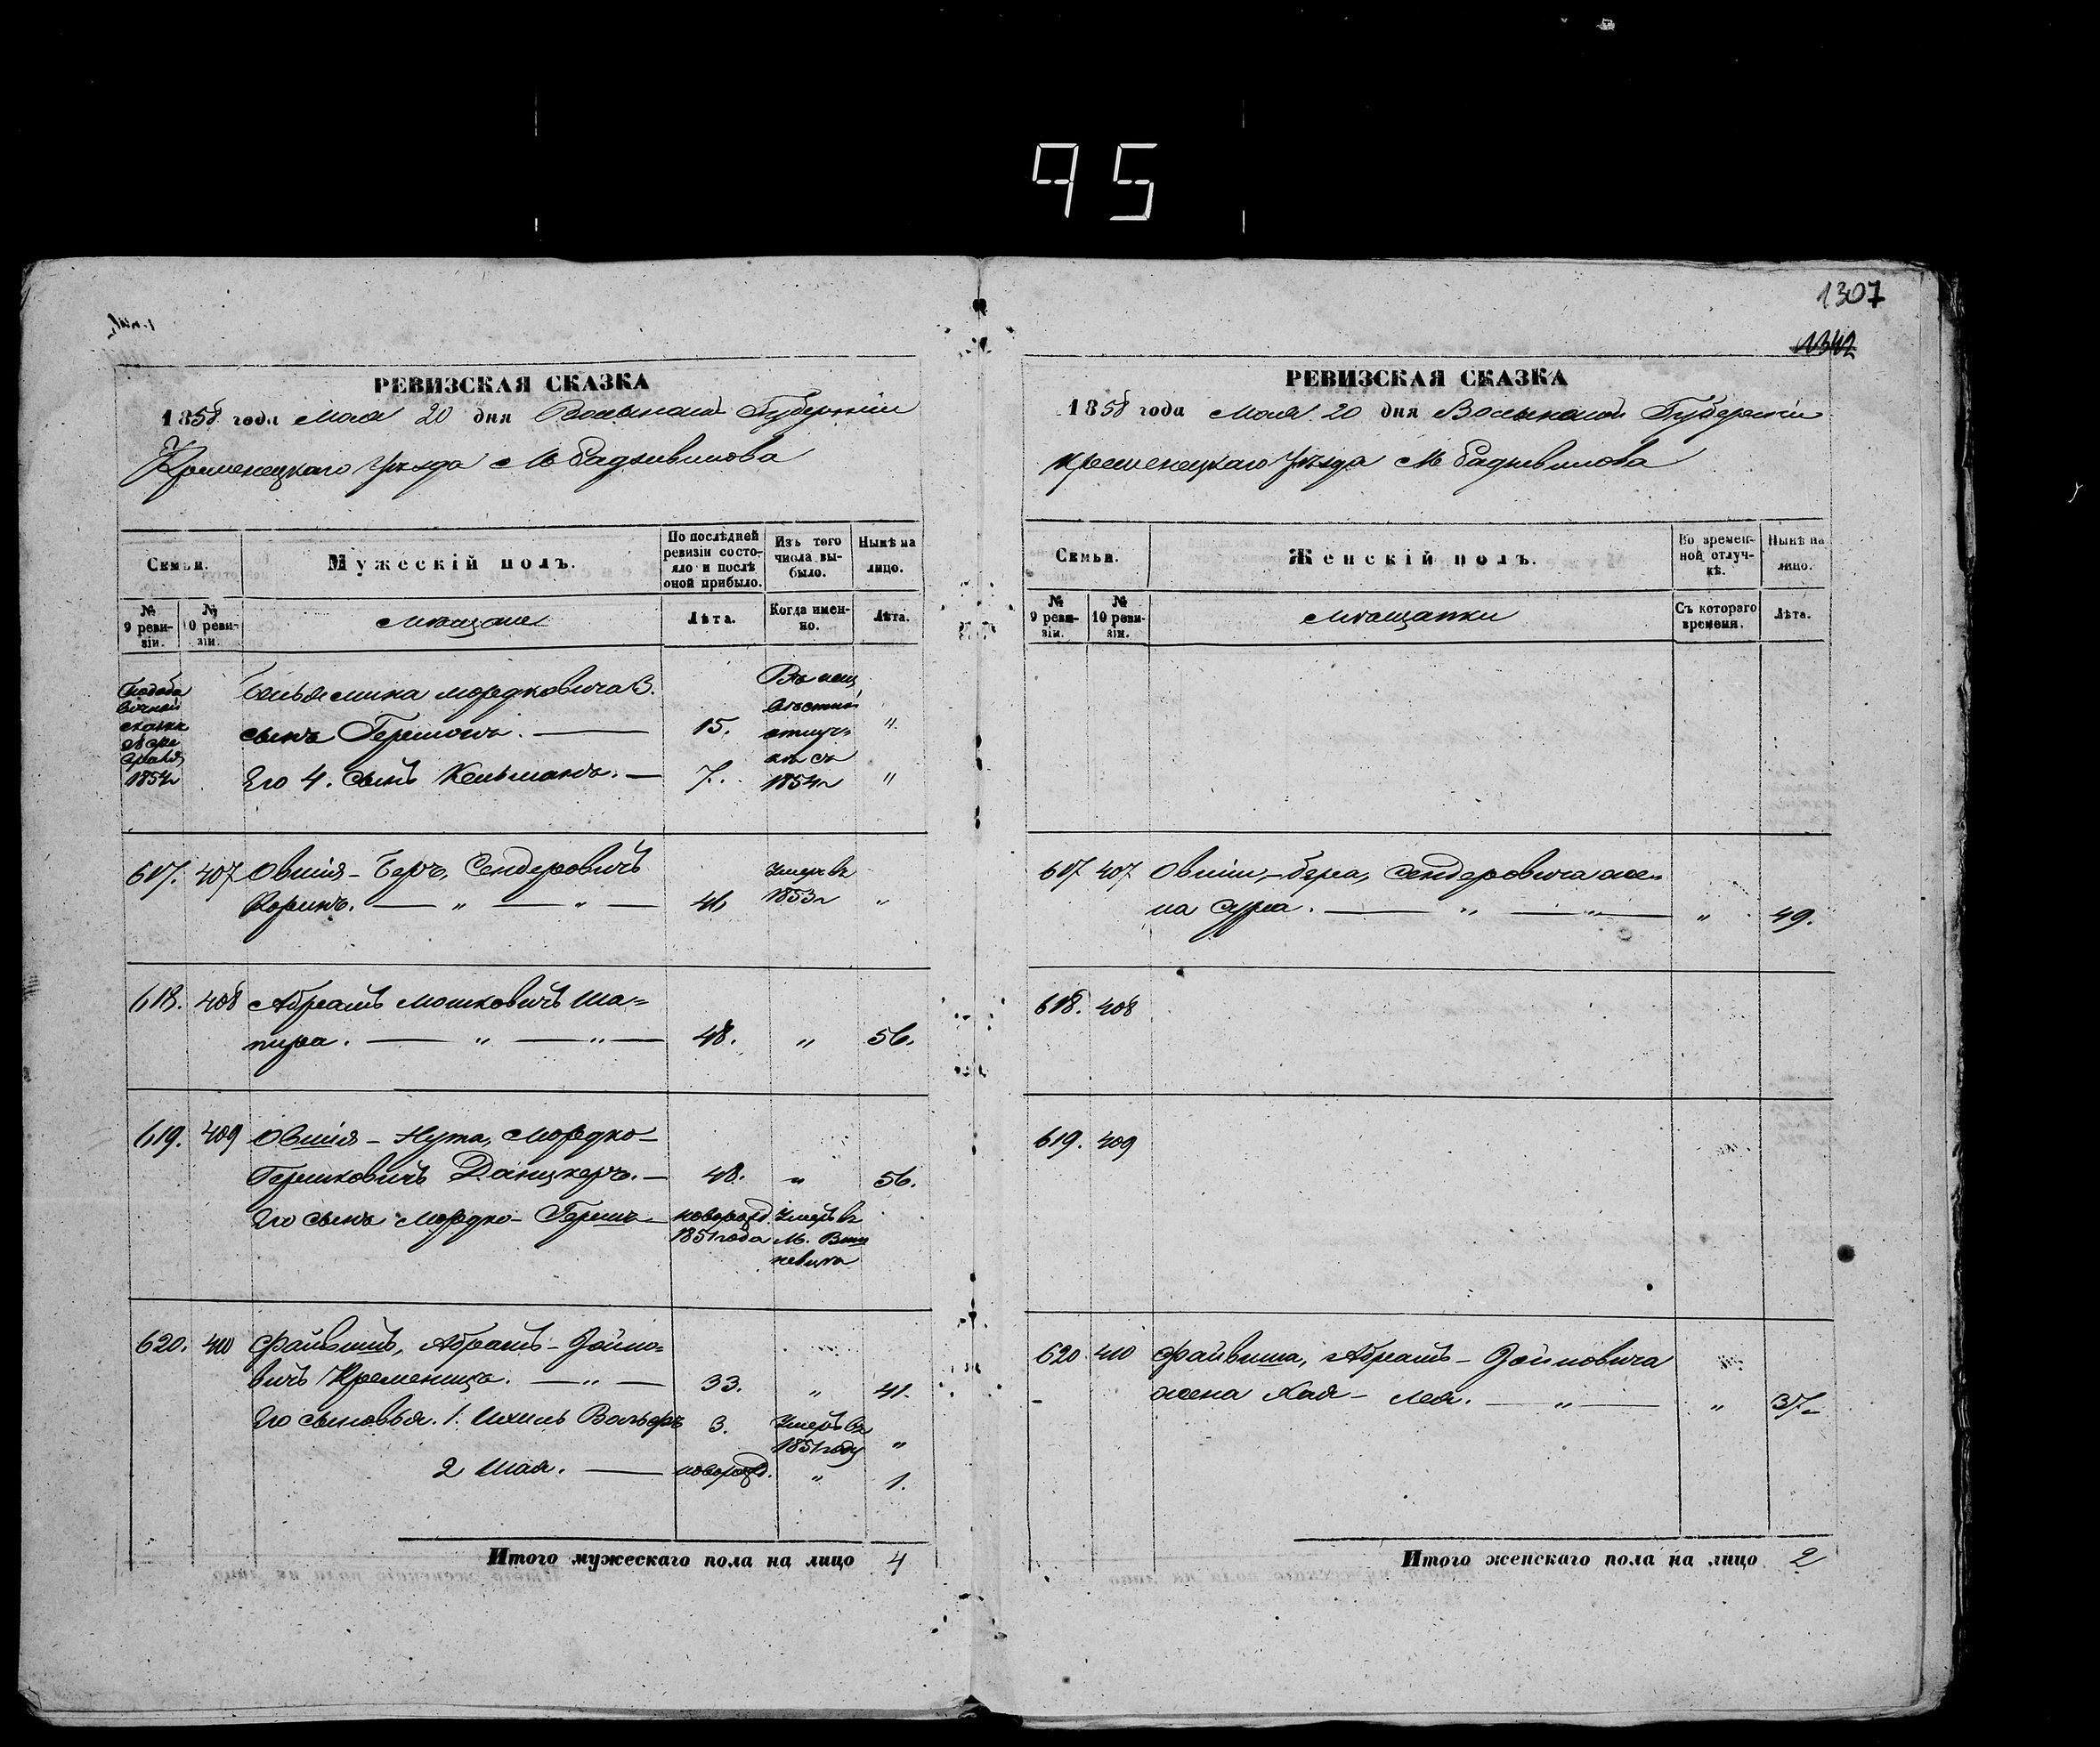 95
1307
1342
РЕВИЗСКАЯ СКАЗКА
1858 года Мая 20 дня Волынской Губернiи
Кременецкаго Уѣзда М. Радзивилова
Семьи.
Мужескiй полъ.
По послѣдней ревизiи состояло и послѣ оной прибыло.
Изъ того числа выбыло.
Нынѣ на лицо.
№ 9 ревизiи.
№ 10 ревизiи.
Мѣщане
Лѣта.
Когда именно.
Лѣта.
сказки
1854г
Беньямина Мордковича 3.
сынъ Гершонъ. — 15. "
Его 4. сынъ Кельманъ. — 7. "
отлуч-
кѣ съ
1854г
617. 407 Овшiя - Беръ, Сендеровичъ
Коринъ. — " — " — 41 Умеръ въ 1853г "
618. 408 Абрамъ Мошковичъ Ша=
пира. — " — " — 48. " 56.
619. 409 Овшiя - Нута, Мордко-
Гершковичъ Данцкеръ. — 48. " 56.
Его сынъ Мордко - Гершъ — новорожд. Умеръ въ
1851 года М.
620. 410 Файвишъ, Абрамъ - Зойно=
вичъ Кременица. — " — 33. " 41.
Его сыновья. 1. Ихиль Вольфъ 3. Умеръ въ
1851 году "
2 Шая. — новорожд. " 1.
Итого мужескаго пола на лицо 4
РЕВИЗСКАЯ СКАЗКА
1858 года Мая 20 дня Волынской Губернiи
Кременецкаго Уѣзда М. Радзивилова
Семьи.
Женскiй полъ.
Во временной отлучкѣ.
Нынѣ на лицо.
№ 9 ревизiи.
№ 10 ревизiи.
Мѣщанки
Съ котораго времени.
Лѣта.
617 407 Овшiи, - Бера, Сендеровича же=
на Сура. — " — " — " 49.
618. 408
619. 409
620 410 Файвиша, Абрамъ - Зойновича
жена Хая - Лея. — " — " 37.
Итого женскаго пола на лицо 2